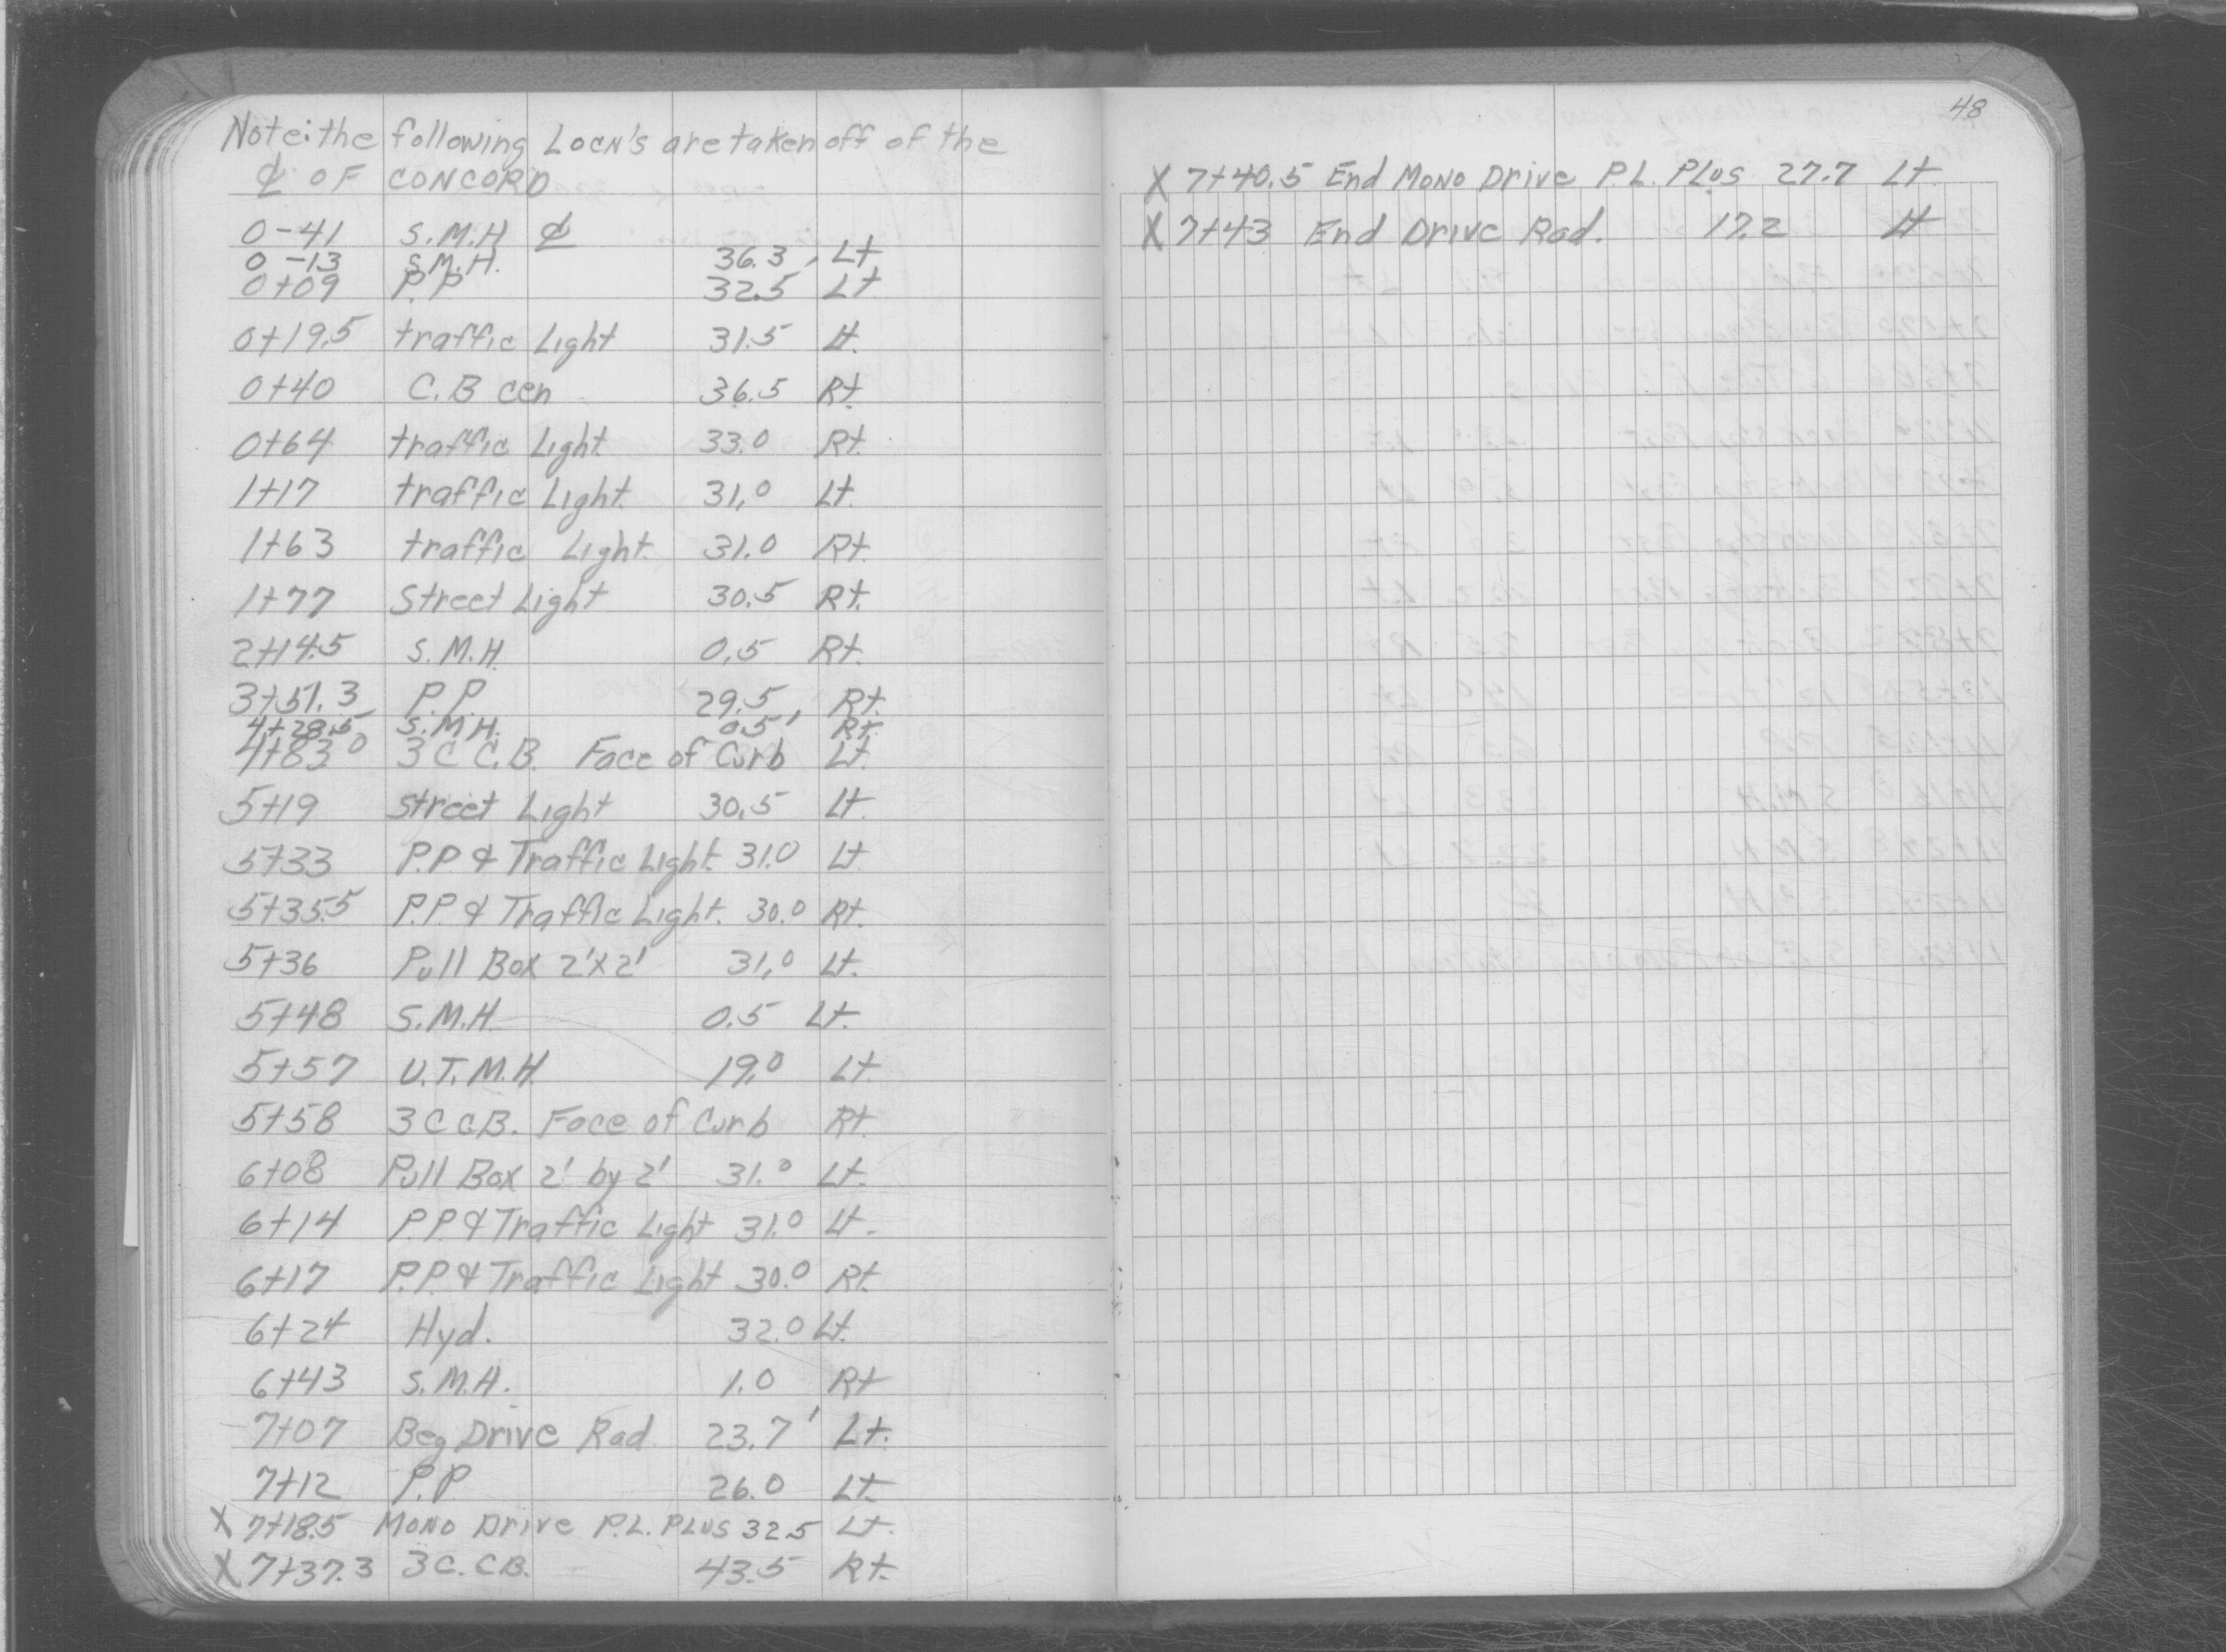 Note: the following Locn's are taken off of the
℄ OF CONCORD
0-41 S.M.H ℄
0-13 S.M.H. 36.3' Lt
0+09 P.P 32.5 Lt
0+19.5 traffic Light 31.5 Lt.
0+40 C.B cen 36.5 Rt.
0+64 traffic Light 33.0 Rt.
1+17 traffic Light. 31.0 Lt.
1+63 traffic Light. 31.0 Rt.
1+77 Street Light 30.5 Rt.
2+14.5 S.M.H. 0.5 Rt.
3+51.3 P.P. 29.5 Rt.
4+28.5 S.M.H. 0.5' Rt.
4+83.0 3 C C.B. Face of Curb Lt.
5+19 street Light 30.5 Lt.
5+33 P.P. & Traffic Light. 31.0 Lt.
5+35.5 P.P. & Traffic Light. 30.0 Rt.
5+36 Pull Box 2'X2' 31.0 Lt.
5+48 S.M.H. 0.5 Lt.
5+57 U.T.M.H. 19.0 Lt.
5+58 3 C C.B. Face of Curb Rt.
6+08 Pull Box 2' by 2' 31.0 Lt.
6+14 P.P. & Traffic Light 31.0 Lt.
6+17 P.P. & Traffic Light 30.0 Rt.
6+24 Hyd. 32.0 Lt.
6+43 S.M.H. 1.0 Rt
7+07 Beg Drive Rad 23.7' Lt.
7+12 P.P 26.0 Lt.
X 7+18.5 MONO Drive P.L. PLUS 32.5 Lt.
X 7+37.3 3C.C.B. 43.5 Rt.
48
X 7+40.5 End MONO Drive P.L. PLUS 27.7 Lt
X 7+43 End Drive Rad. 17.2 Lt